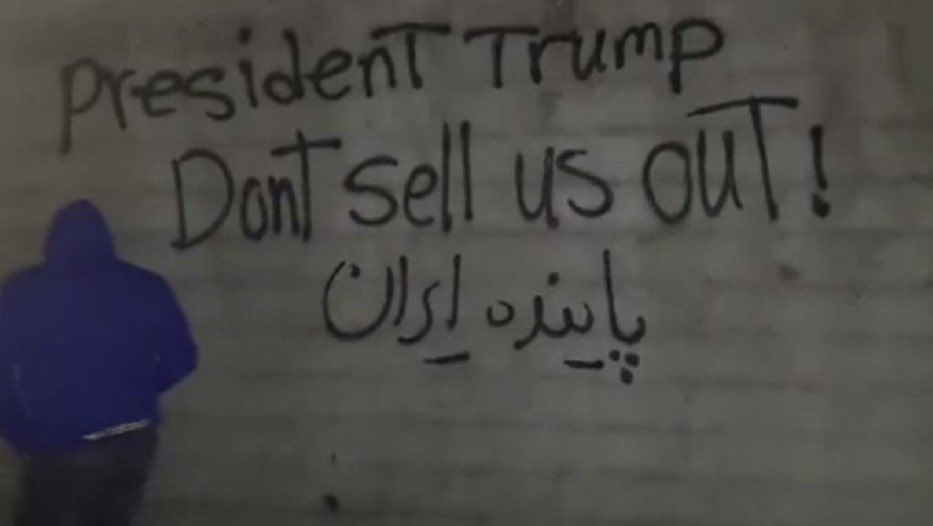 President Trump
Dont sell us out!
پاینده ایران